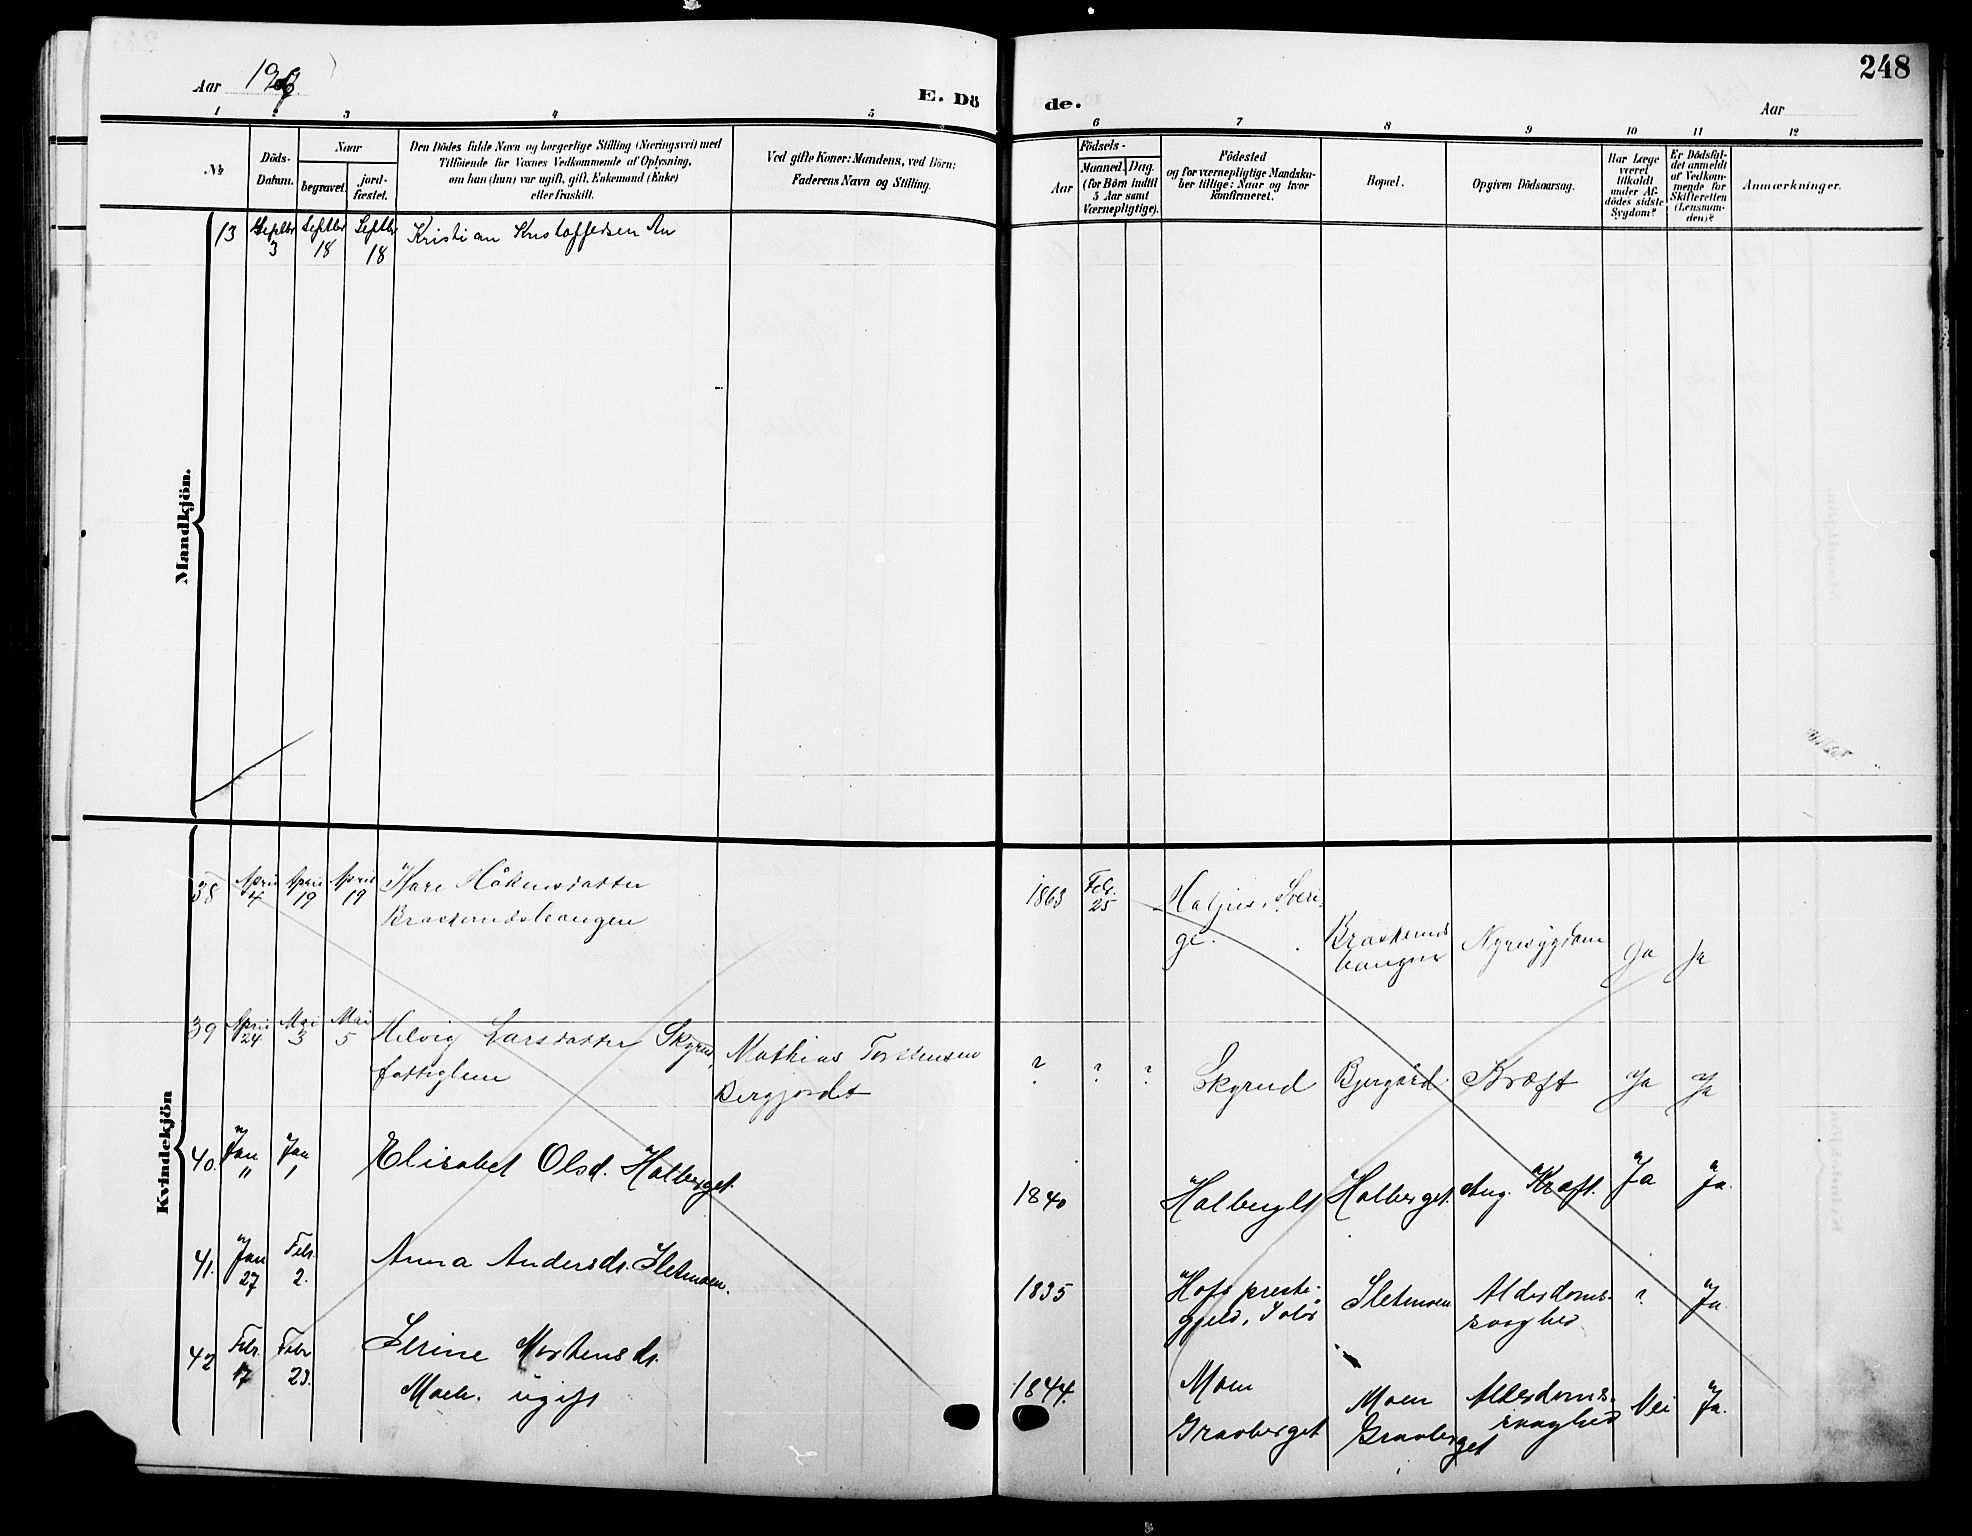 248
Aar
E. Dö
de.
Aar
1 2 3 4 5 6 7 8 9 10 11 12
No
Döds-
Datum.
Naar
begravet.
jord-
fæstet.
Den Dödes fulde Navn og borgerlige Stilling (Næringsvei) med
Tilföiende for Voxnes Vedkommende af Oplysning,
om han (hun) var ugift, gift, Enkemand (Enke)
eller fraskilt.
Ved gifte Koner: Mandens, ved Börn:
Faderens Navn og Stilling.
Födsels-
Aar
Maaned. Dag.
(for Börn indtil
5 Aar samt
Værnepligtige).
Födested
og for værnepligtige Mandska-
ber tillige: Naar og hvor
konfirmeret.
Bopæl.
Opgiven Dödsaarsag.
Har Læge
været
tilkaldt
under Af-
dödes sidste
Sygdom?
Er Dödsfal-
det anmeldt
af Vedkom-
mende for
Skifteretten
(Lensman-
den)?
Anmærkninger.
Mandkjön.
13 Septbr 3 Septbr 18 Septbr 18 Kristian Kristoffersen
Kvindekjön
38 April 4 April 19 April 19 Kari Håkensdatter
1863 Febr. 25 Sveri-
ge. Nyresygdom Ja Ja
39 April 24 Mai 3 Mai 5 Helvig Larsdatter Skyrud,
fattiglem
Mathias Torstensen
Bergjordet
? ? ? Skyrud Kræft Ja Ja
40. Jan 11 Jan 1 Elisabet Olsd. Halberget.
1840 Halberget Halberget. Ang. Kræft. Ja Ja.
41. Jan 27 Febr. 2. Anna Andersdr. Sletmoen.
1835 Hofs preste-
gjeld, Solør Sletmoen Alderdoms-
svaghed ? Ja.
42 Febr. 17 Febr 23. Serine Mortensdr.
Moen. ugift
1844. Moen
Gravberget Moen
Gravberget Alderdoms-
svaghed Nei Ja.